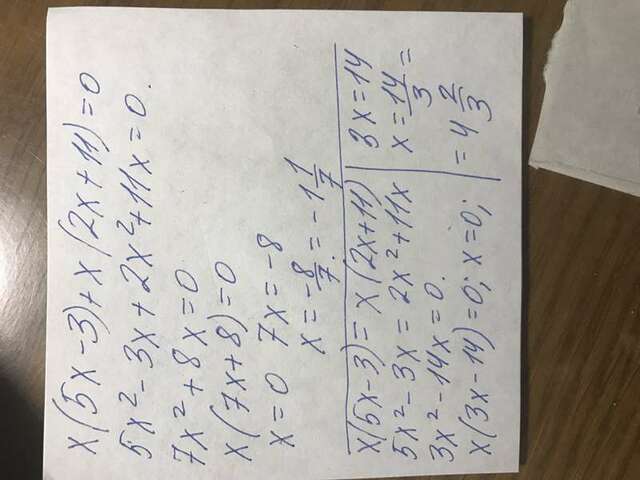 x(5x-3)+x(2x+11)=0
5x²-3x+2x²+11x=0.
7x²+8x=0
x(7x+8)=0
x=0 7x=-8
x=-8/7=-1 1/7
x(5x-3)=x(2x+11)
5x²-3x=2x²+11x
3x²-14x=0.
x(3x-14)=0; x=0;
3x=14
x=14/3=
=4 2/3